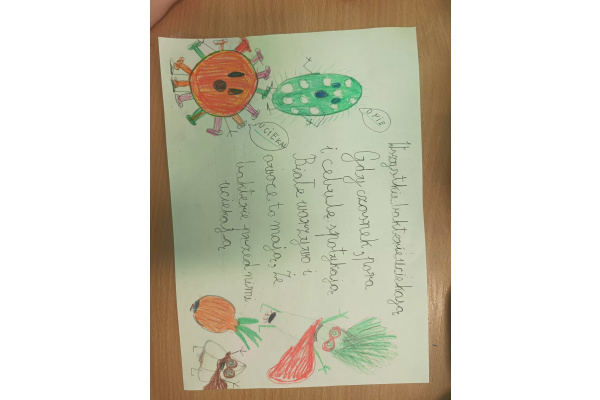 Wszystkie bakterie uciekają
Gdy czosnek, pora
i cebulę spotykają
Białe warzywo i
owoce to mają, że
bakterie przed nimi
uciekają
UCIEKAJ